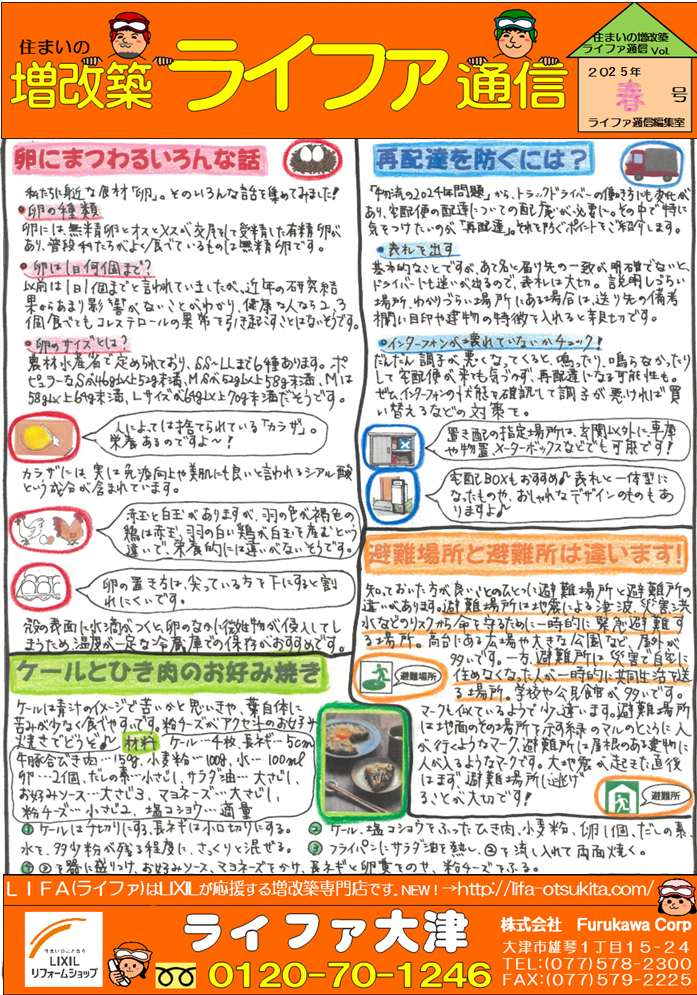 住まいの
増改築 ライファ 通信
住まいの増改築
ライファ通信 Vol.
2025年
春 号
ライファ通信編集室
卵にまつわるいろんな話
私たちに身近な食材「卵」。そのいろんな話を集めてみました!
・卵の種類
卵には、無精卵とオスとメスが交尾して受精した有精卵が
あり、普段私たちがよく食べているものは無精卵です。
・卵は1日何個まで?
以前は1日1個までと言われていましたが、近年の研究結
果からあまり影響がないことがわかり、健康な人なら2、3
個食べてもコレステロールの異常を引き起こすことはないそうです。
・卵のサイズとは?
農林水産省で定められており、SS~LLまで6種あります。ポ
ピュラーなSが46g以上52g未満、MSが52g以上58g未満、Mは
58g以上64g未満、Lサイズが64g以上70g未満だそうです。
人によっては捨てられている「カラザ」。
栄養あるのですよ~!
カラザには、実は免疫向上や美肌にも良いと言われるシアル酸
という成分が含まれています。
赤玉と白玉がありますが、羽の色が褐色の
鶏は赤玉、羽の白い鶏が白玉を産むという
違いで、栄養的には違いがないそうです。
卵の置き方は、尖っている方を下にすると割
れにくいです。
殻の表面に水滴がつくと、卵のなかに微生物が侵入してし
まうため、温度が一定な冷蔵庫での保存がおすすめです。
再配達を防ぐには?
「物流の2024年問題」から、トラックドライバーの働き方にも変化が
あり、宅配便の配達についての配慮が必要に。その中で特に
気をつけたいのが「再配達」。それを防ぐポイントをご紹介します。
・表札を出す
基本的なことですが、あて名と届け先の一致が明確でないと、
ドライバーも迷いが出るので、表札は大切。説明しづらい
場所、わかりづらい場所にある場合は、送り先の備考
欄に目印や建物の特徴を入れると親切です。
・インターフォンが壊れていないかチェック!
だんだん調子が悪くなってくると、鳴ったり、鳴らなかったり
して宅配便が来ても気づかず、再配達になる可能性も。
ぜひインターフォンの状態を確認して調子が悪ければ買
い替えるなどの対策を。
置き配の指定場所は、玄関以外に、車庫
や物置、メーターボックスなどでも可能です!
宅配BOXもおすすめ♪表札と一体型に
なったものや、おしゃれなデザインのものもあ
りますよ♪
避難場所と避難所は違います!
知っておいた方が良いことのひとつに避難場所と避難所の
違いがあります。避難場所は地震による津波、災害、洪
水などのリスクから命を守るために一時的に緊急避難す
る場所。高台にある広場や大きな公園など、屋外が
多いです。一方、避難所は災害で自宅に
住めなくなった人が一時的に共同生活で送
る場所。学校や公民館が多いです。
マークも似ているようで少し違います。避難場所
は地面のその場所を示す緑のマルのところに人
が行くようなマーク、避難所は屋根のある建物に
人が入るようなマークです。大地震が起きた直後
はまず、避難場所に逃げ
ることが大切です!
避難場所
避難所
ケールとひき肉のお好み焼き
ケールは青汁のイメージで苦いかと思いきや、葉自体に
苦みが少なく食べやすいです。粉チーズがアクセントのお好み
焼きでどうぞ♪
材料 ケール…4枚、長ネギ…5cm
牛豚合びき肉…150g、小麦粉…100g、水…100ml
卵…2個、だしの素…小さじ1、サラダ油…大さじ1、
お好みソース…大さじ3、マヨネーズ…大さじ1、
粉チーズ…小さじ2、塩コショウ…適量
① ケールは千切りにする、長ネギは小口切りにする。
② ケール、塩コショウをふったひき肉、小麦粉、卵1個、だしの素
水を、多少粉が残る程度に、さっくりと混ぜる。
③ フライパンにサラダ油を熱し、②を流し入れて両面焼く。
④ ③を器に盛りつけ、お好みソース、マヨネーズをかけ、長ネギと卵黄をのせ、粉チーズをふる。
LIFA(ライファ)はLIXILが応援する増改築専門店です。NEW!→http://lifa-otsukita.com/
住まいのことなら
LIXIL
リフォームショップ
ライファ大津
0120-70-1246
株式会社 Furukawa Corp
大津市雄琴1丁目15-24
TEL:(077)578-2300
FAX:(077)579-2225